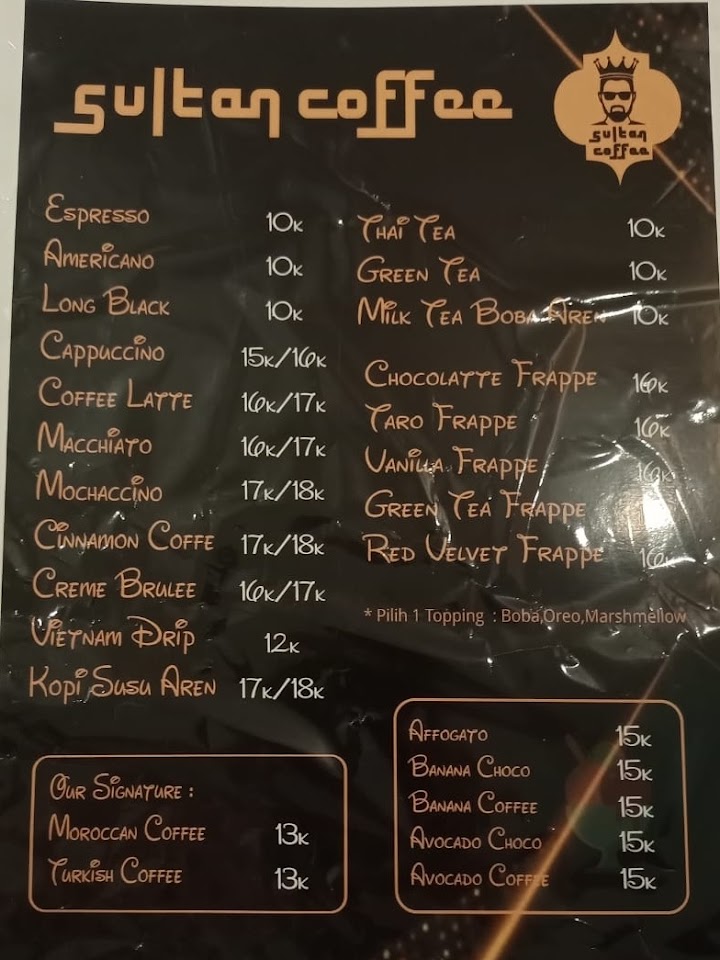 sultan coffee
sultan
coffee
Espresso 10k
Americano 10k
Long Black 10k
Cappuccino 15k/16k
Coffee Latte 16k/17k
Macchiato 16k/17k
Mochaccino 17k/18k
Cinnamon Coffe 17k/18k
Creme Brulee 16k/17k
Vietnam Drip 12k
Kopi Susu Aren 17k/18k
Our Signature :
Moroccan Coffee 13k
Turkish Coffee 13k
Thai Tea 10k
Green Tea 10k
Milk Tea Boba Aren 10k
Chocolatte Frappe 16k
Taro Frappe 16k
Vanilla Frappe 16k
Green Tea Frappe
Red Velvet Frappe 16k
* Pilih 1 Topping : Boba,Oreo,Marshmellow
Affogato 15k
Banana Choco 15k
Banana Coffee 15k
Avocado Choco 15k
Avocado Coffee 15k